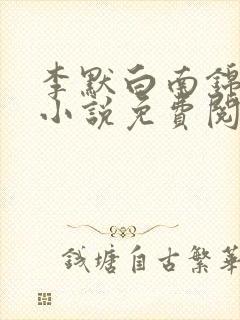 李默白南錦
小說免費閱
錢塘自古繁華